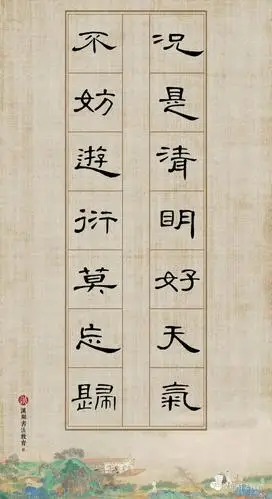 况是清明好天氣
不妨遊衍莫忘歸
漢翔書法教育